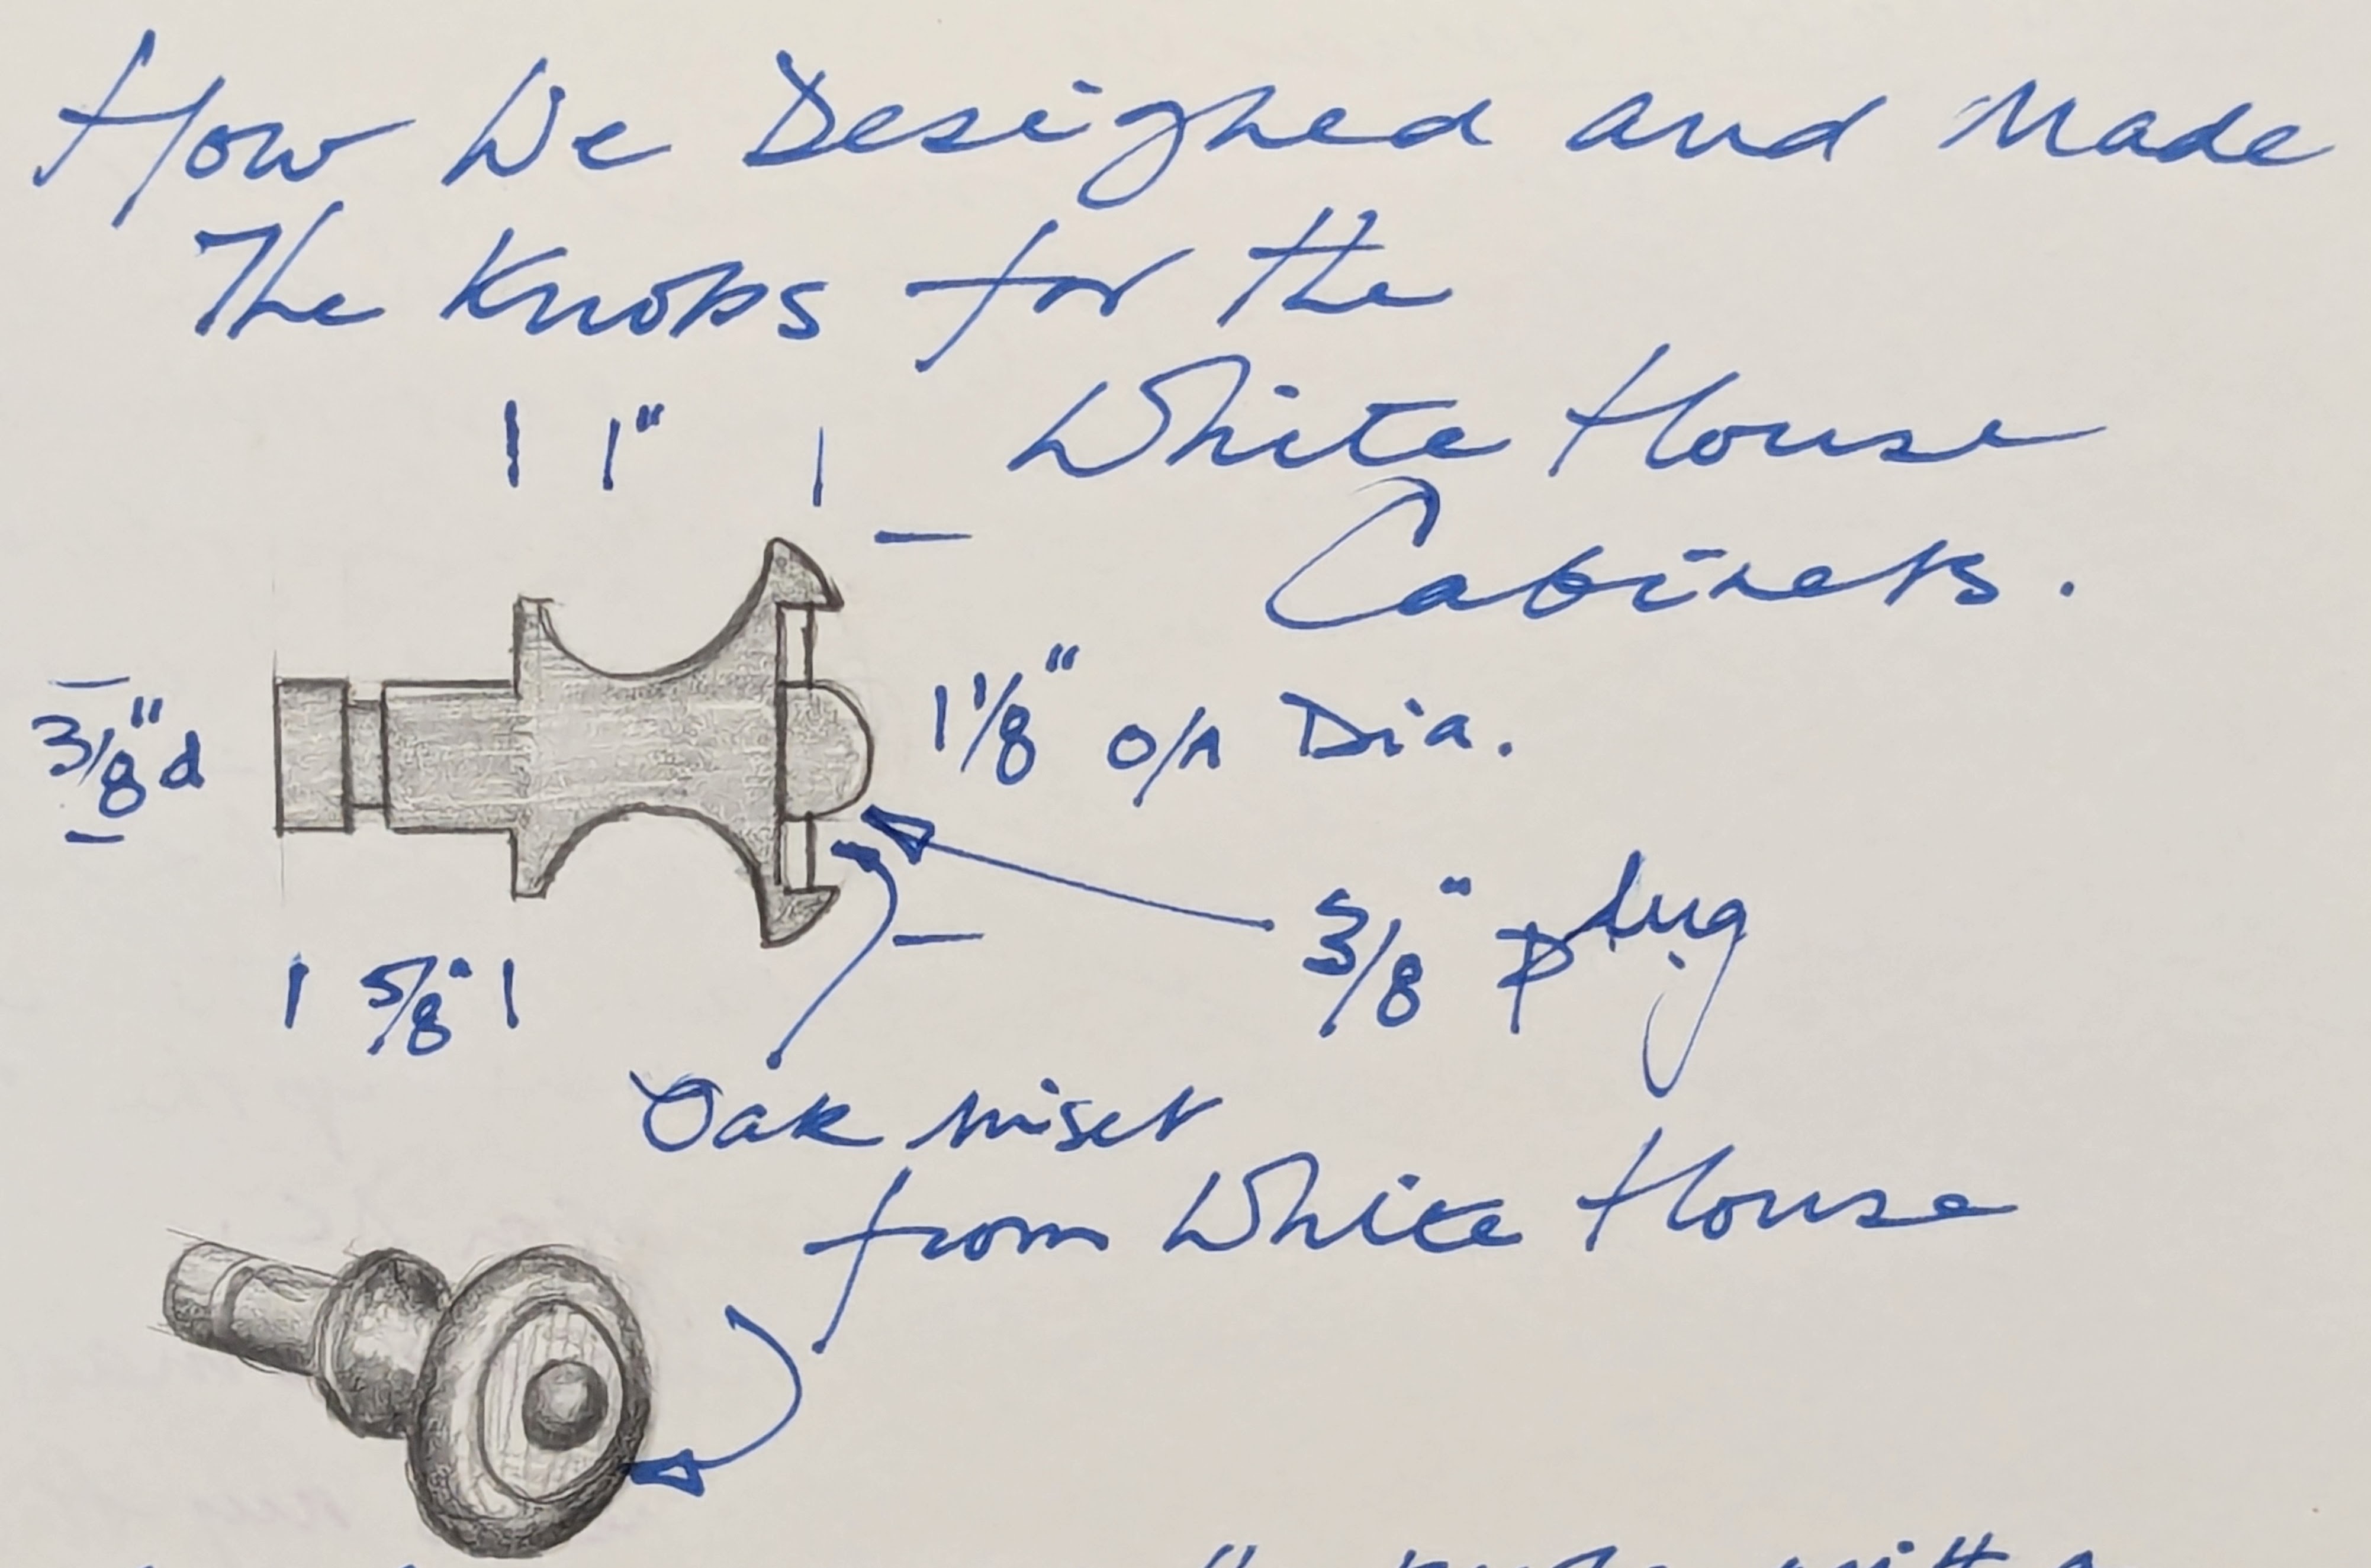 How We Designed and Made
The Knobs for the
White House
Cabinets.
1"
3/8" d
1 1/8" O/A Dia.
3/8" plug
5/8"
Oak inset
from White House